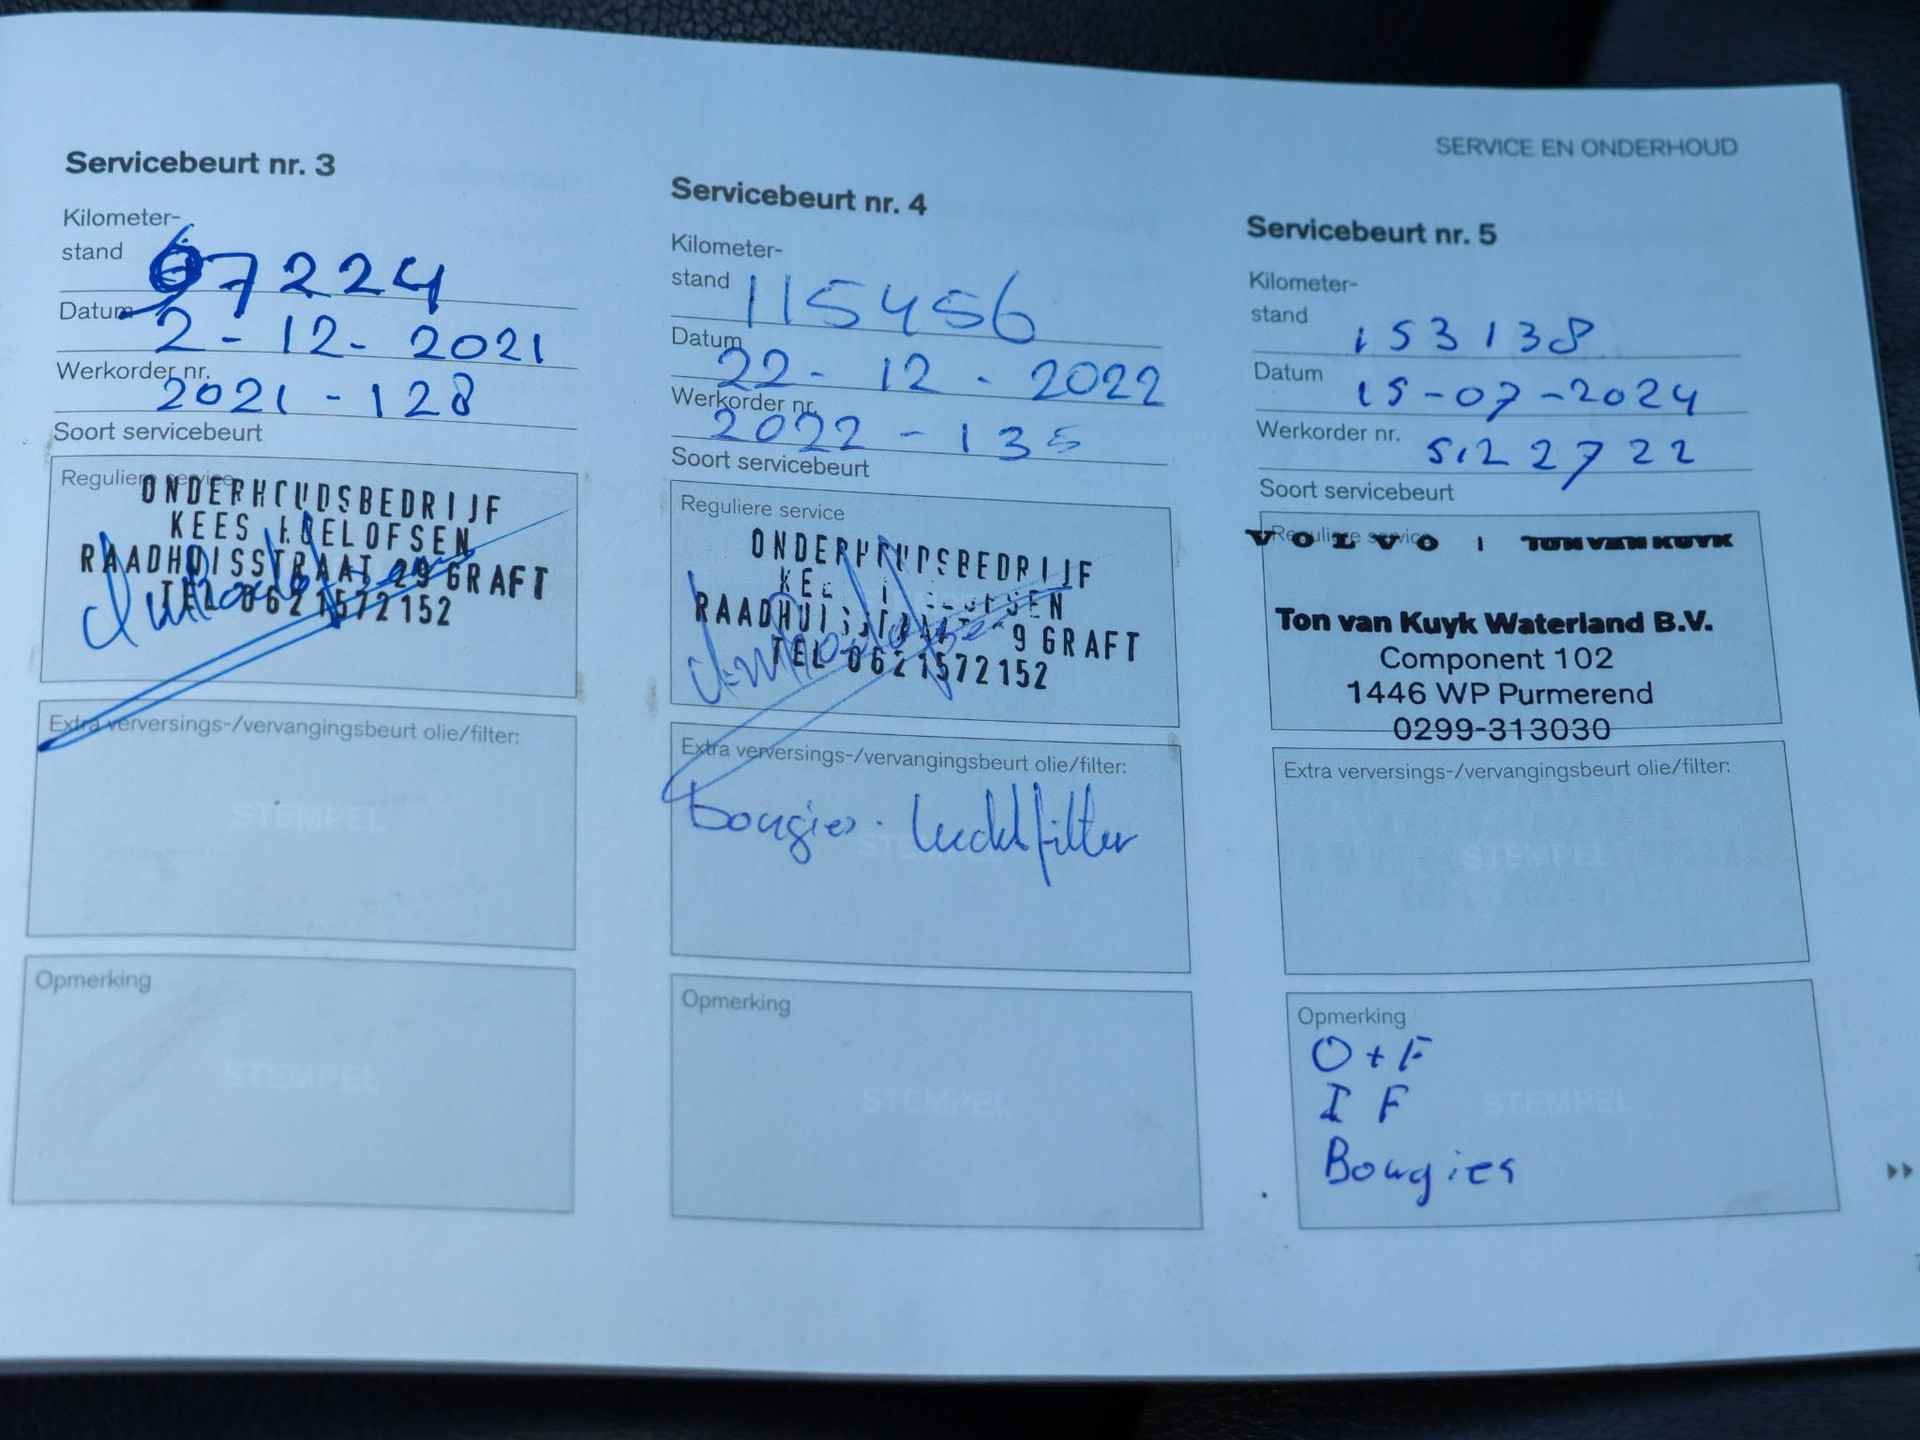 SERVICE EN ONDERHOUD
Servicebeurt nr. 3
Kilometer-
stand 7224
Datum 2-12-2021
Werkorder nr. 2021-128
Soort servicebeurt
Reguliere service
ONDERHOUDSBEDRIJF
KEES ROELOFSEN
RAADHUISSTRAAT 29 GRAFT
TEL 0621572152
Extra verversings-/vervangingsbeurt olie/filter:
STEMPEL
Opmerking
STEMPEL
Servicebeurt nr. 4
Kilometer-
stand 115456
Datum 22-12-2022
Werkorder nr. 2022-135
Soort servicebeurt
Reguliere service
ONDERHOUDSBEDRIJF
KEES ROELOFSEN
RAADHUISSTRAAT 29 GRAFT
TEL 0621572152
Extra verversings-/vervangingsbeurt olie/filter:
bougies. luchtfilter
STEMPEL
Opmerking
STEMPEL
Servicebeurt nr. 5
Kilometer-
stand 153138
Datum 15-07-2024
Werkorder nr. 5122722
Soort servicebeurt
Reguliere service
VOLVO | TON VAN KUYK
Ton van Kuyk Waterland B.V.
Component 102
1446 WP Purmerend
0299-313030
Extra verversings-/vervangingsbeurt olie/filter:
STEMPEL
Opmerking
O+F
I F
STEMPEL
Bougies